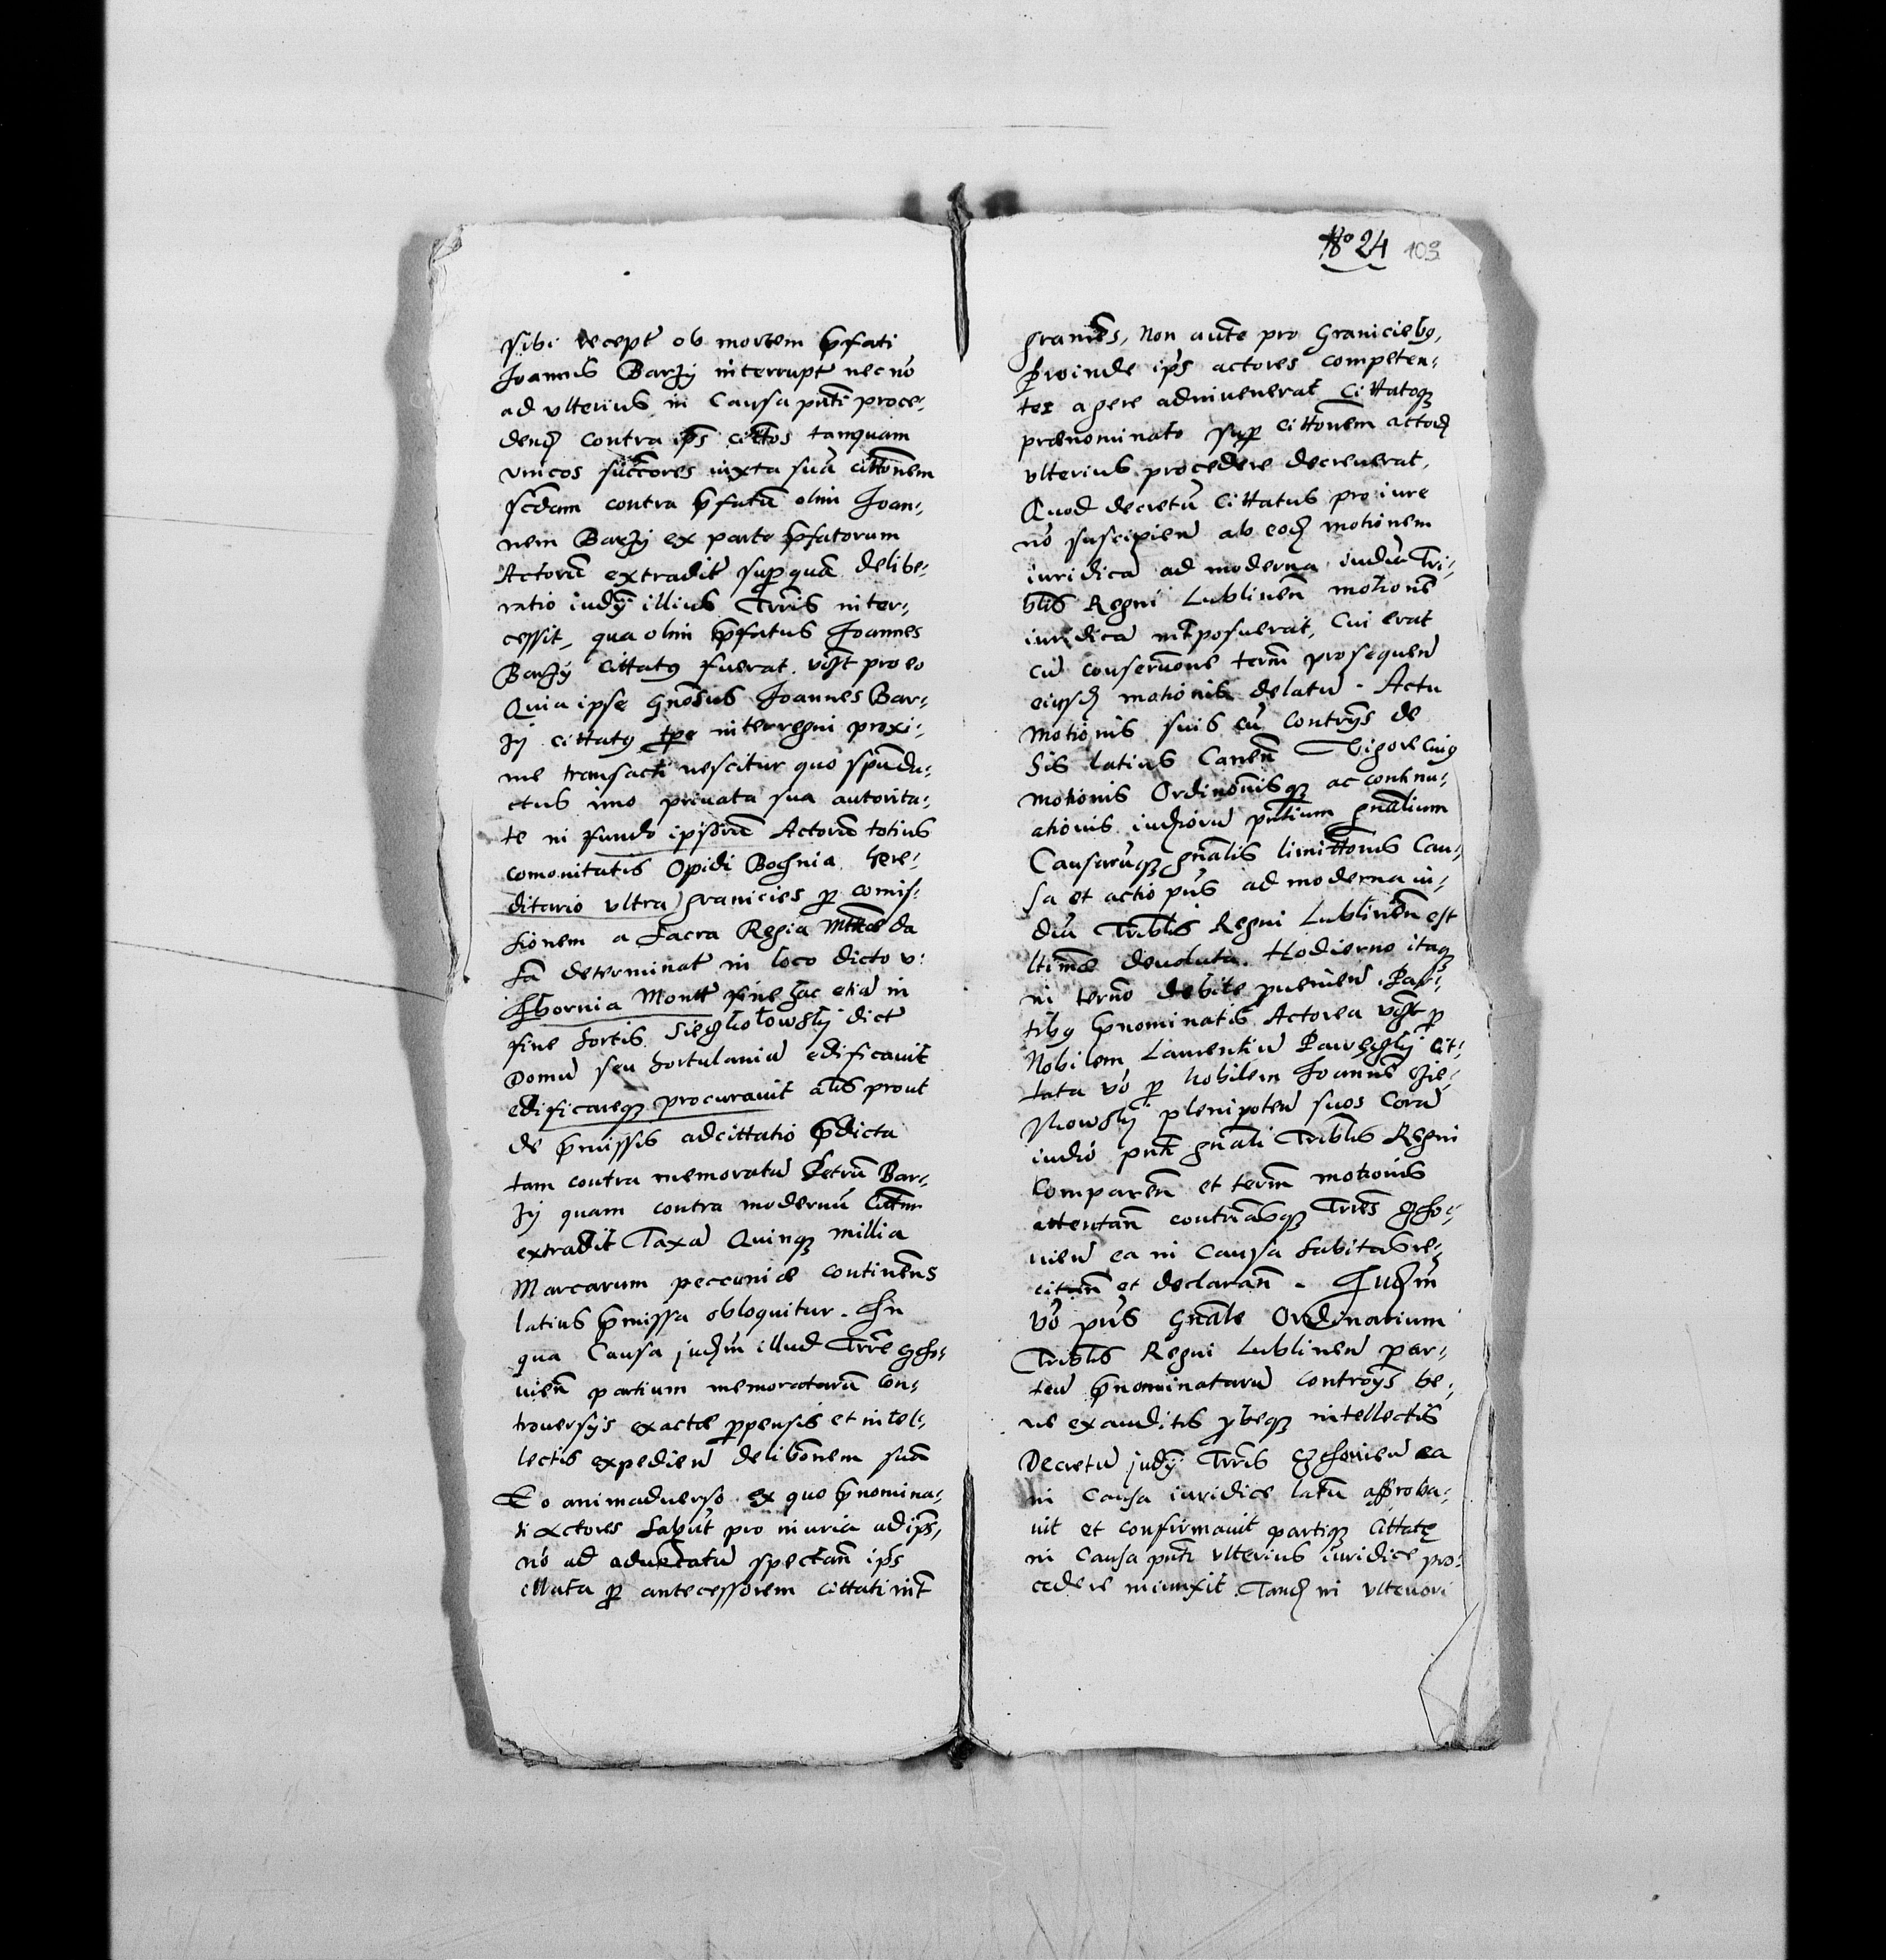 sibi recept ob mortem p̃fati
Joannis Barzÿ interrupt nec nõ
ad vlterius in Causa pñti proce¬
dend contra ip̃s citt̃os tanquam
vnicos succ̃ores iuxta suã citt̃onem
sc̃dam contra p̃fatũ olim Joan¬
nem Barzÿ ex parte p̃fatorum
Actorũ extradit̃ sup quã delibe¬
ratio iudÿ illius Trr̃is inter¬
cessit, qua olim p̃fatus Joannes
Barzÿ cittatꝰ fuerat. vidzt pro eo
Quia ipse Gñosus Joannes Bar¬
zÿ cittatꝰ tp̃e interregni proxi¬
me transacti nescitur quo sp̃u du¬
ctus imo priuata sua autorita¬
te in fundo ipsorũ Actorũ totius
comonitatis Opidi Bochnia here¬
ditario vltra granicies ꝑ comis¬
sionem a Sacra Regia Mtt̃e da
tã determinat̃ in loco dicto v:
Chornia Montt̃ siue hac etiã in
siue sortis dict̃
Domũ seu hortulaniã edificauit
edificareqꝫ procurauit al̃is prout
de p̃missis adcittatio p̃dicta
tam contra memoratũ Petrũ Bar¬
zÿ quam contra modernũ Citt̃um
extradit Taxã Quinqꝫ millia
Marcarum peccuniæ continens
latius p̃missa obloquitur. In
qua Causa judm illud Trr̃e Czcho¬
uieñ partium memoratarũ Con¬
trouersÿs exactæ ꝑpensis et intel¬
lectis expedieñ delib̃onem suã
Eo animaduerso ex quo p̃nomina¬
ti Actores habẽt pro iniuria ad ip̃s,
nõ ad aduocatũ spectañ ip̃s
illata ꝑ antecessorem cittati int̃
No 24 103
granic̃s, Non aut̃e pro Graniciebꝰ,
Proinde ip̃s actores competen¬
ter agere adinuenerat Cittatoqꝫ
prænominato sup citt̃onem actoꝝ
vlterius procedere decreuerat.
Quod decretũ Cittatus pro iure
nõ suscipieñ ab eod motionem
iuridicã ad moderna iudia Tri¬
blis Regni Lublineñ motionẽ
iuridicã int̃posuerat, Cui erat
cũ conseru̇one term̃ prosequeñ
eiusd motionis delatũ. Actu
Motionis suis cũ Contrÿs de
Sis latius Caneñ Vigore Cuiꝰ
motionis Ordinõnisqꝫ ac continu¬
ationis iudiorũ pñtium gñalium
Causarũqꝫ gñalis limitt̃onis Cau¬
sa et actio pñs ad moderna iu¬
dia Triblis Regni Lublineñ est
ltimæ deuoluta. Hodierno itaqꝫ
in termõ debite pueniẽn Par¬
tibꝰ p̃nominatis Actorea vidzt ꝑ
Nobilem Laurentiũ Cit¬
tata võ ꝑ Nobilem Joannẽ Gie¬
plenipoteñ suos Corã
iudio pñti gñali Triblis Regni
Compareñ et term̃ motionis
attentañ contrũabusqꝫ Trr̃es Czcho¬
uieñ ea in Causa habitas re¬
citañ et declarañ. Judm
võ pñs Gñale Ordinarium
Triblis Regni Lublineñ par¬
tiũ p̃nominatarũ Controÿs be¬
ne exauditis ybeqꝫ intellectis
Decretũ judÿ Trr̃is Czchouieñ ea
in Causa iuridice latũ affroba¬
uit et confirmauit partiqꝫ Cittatę
in Causa pñti vlterius iuridice pro¬
cedere iniunxit. Tand in vlteriori